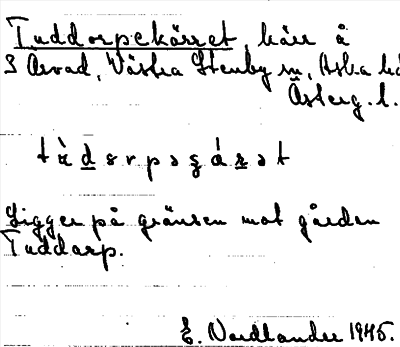 Tuddorpekärret, kärr å
S Arvad, Västra Stenby sn, Aska hd
Österg. l.
tὰdɷrpəʂáʀət
Ligger på gränsen mot gården
Tuddarp.
E. Nordlander 1945.